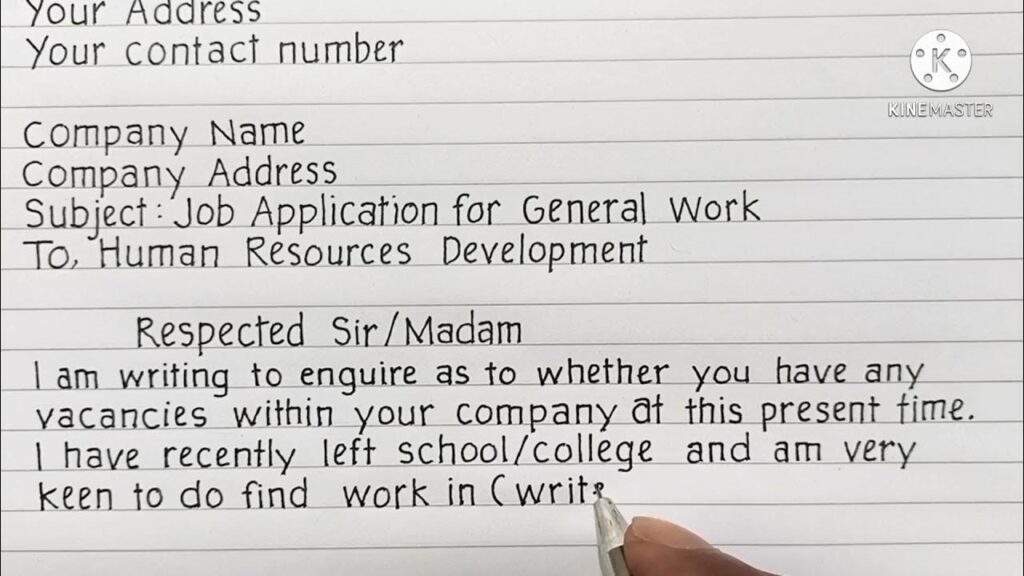 Your Address
Your contact number
KINEMASTER
Company Name
Company Address
Subject: Job Application for General Work
To, Human Resources Development
Respected Sir/Madam
I am writing to enquire as to whether you have any
vacancies within your company at this present time.
I have recently left school/college and am very
keen to do find work in (write